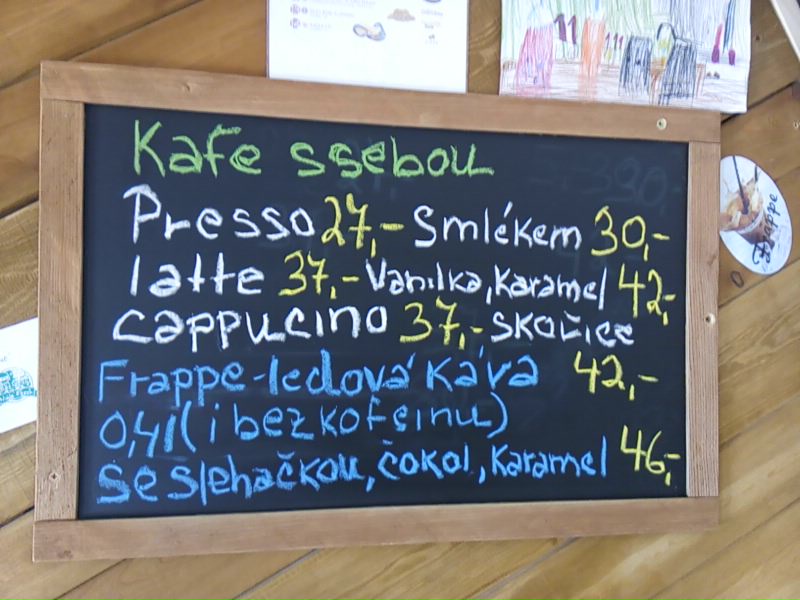 Kafe ssebou
Presso 27,- Smlékem 30,-
latte 37,- Vanilka, Karamel 42,-
cappucino 37,- skořice
Frappe - ledová káva 42,-
0,4l (i bez kofeinu)
Se slehačkou, čokol, Karamel 46,-
Frappe